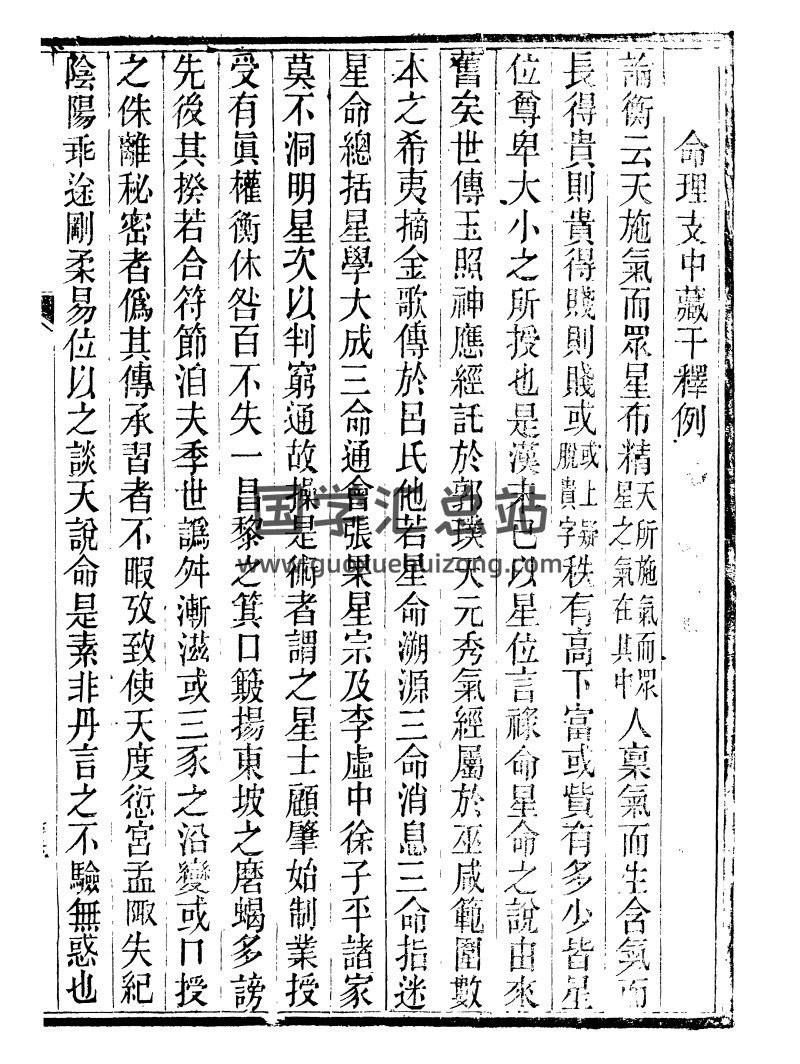 命理支中藏干釋例
論衡云天施氣而眾星布精天所施氣而眾星之氣在其中人稟氣而生含氣而
長得貴則貴得賤則賤或或上疑脫貴字秩有高下富或貲有多少皆星
位尊卑大小之所授也是漢未已以星位言祿命星命之說由來
舊矣世傳玉照神應經託於郭璞天元秀氣經屬於巫咸範圍數
本之希夷摘金歌傳於呂氏他若星命溯源三命消息三命指迷
星命總括星學大成三命通會張果星宗及李虛中徐子平諸家
莫不洞明星次以判窮通故操是術者謂之星士顧肇始制業授
受有眞權衡休咎百不失一昌黎之箕口簸揚東坡之磨蝎多謗
先後其揆若合符節洎夫季世譌舛漸滋或三豕之沿變或口授
之侏離秘密者僞其傳承習者不暇攷致使天度愆宮孟陬失紀
陰陽乖逆剛柔易位以之談天說命是素非丹言之不驗無惑也
国学汇总站
www.guoxuehuizong.com